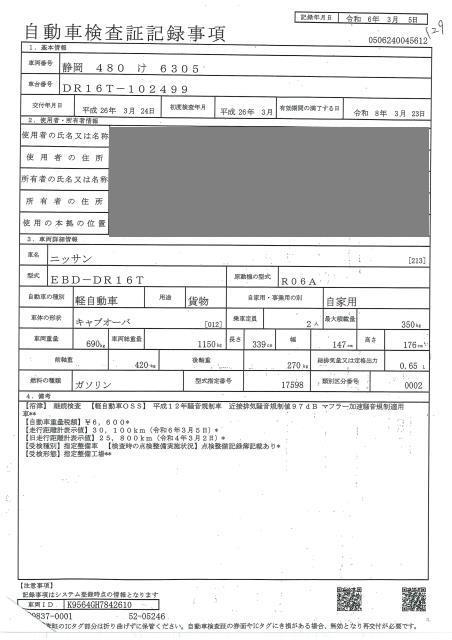 記録年月日 令和 6年 3月 5日
129
自動車検査証記録事項
0506240045612
1. 基本情報
車両番号 静岡 480 け 6305
車台番号 DR16T-102499
交付年月日 平成 26年 3月 24日 初度検査年月 平成 26年 3月 有効期間の満了する日 令和 8年 3月 23日
2. 使用者・所有者情報
使用者の氏名又は名称
使用者の住所
所有者の氏名又は名称
所有者の住所
使用の本拠の位置
3. 車両詳細情報
車名 ニッサン [213]
型式 EBD-DR16T 原動機の型式 R06A
自動車の種別 軽自動車 用途 貨物 自家用・事業用の別 自家用
車体の形状 キャブオーバ [012] 乗車定員 2人 最大積載量 350kg
車両重量 690kg 車両総重量 1150kg 長さ 339cm 幅 147cm 高さ 176cm
前軸重 420kg 後軸重 270kg 総排気量又は定格出力 0.65 L
燃料の種類 ガソリン 型式指定番号 17598 類別区分番号 0002
4. 備考
継続検査 【軽自動車OSS】 平成12年騒音規制車 近接排気騒音規制値97dB マフラー加速騒音規制適用
車**
【自動車重量税額】¥6,600*
【走行距離計表示値】30,100km(令和6年3月5日)*
【旧走行距離計表示値】25,800km(令和4年3月2日)*
【受検種別】指定整備車 【検査時の点検整備実施状況】点検整備記録簿記載あり*
【受検形態】指定整備工場**
【注意事項】
記録事項はシステム登録時点の情報となります
車両ID K9564GH7842610
0837-0001 52-05246
証のICタグ部分は折り曲げずに保管ください。自動車検査証の券面やICタグにき損がある場合、無効となり再交付が必要です。